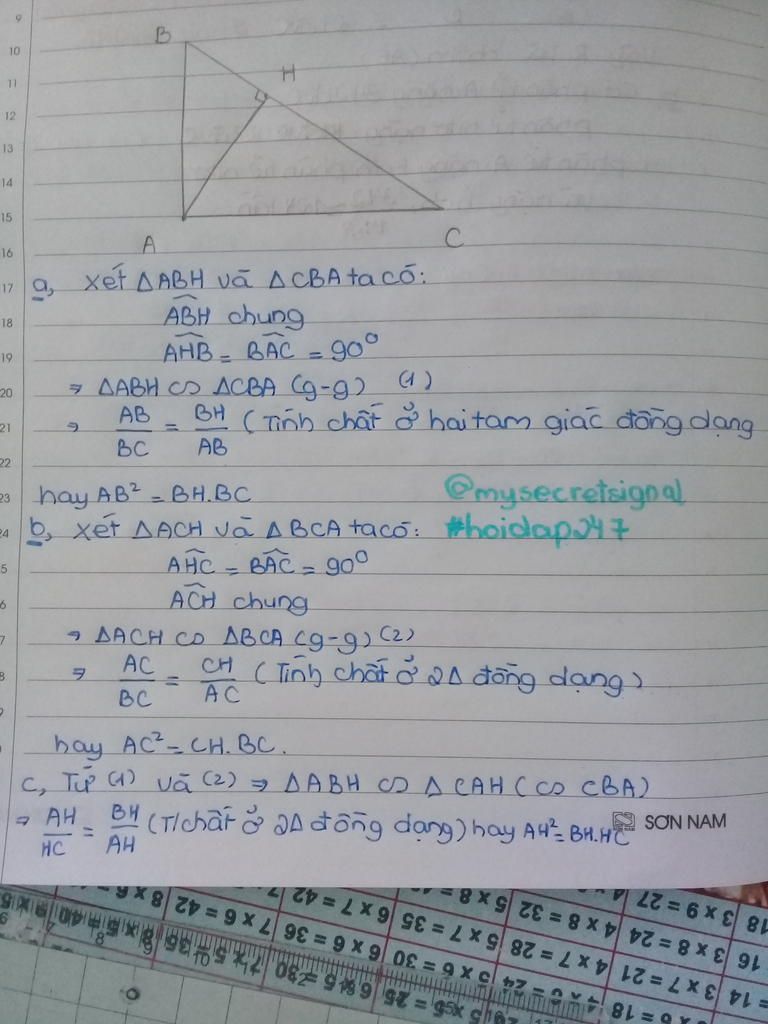 9
10
11
12
13
14
15
16
17
18
19
20
21
22
23
24
5
6
7
8
9
B
H
A
C
a, Xét ΔABH và ΔCBA ta có:
ABH chung
AHB = BAC = 90⁰
⇒ ΔABH ∽ ΔCBA (g-g) (1)
⇒ AB/BC = BH/AB (Tính chất ở hai tam giác đồng dạng
hay AB² = BH.BC
@mysecretsignal
b, Xét ΔACH và ΔBCA ta có:
#hoidap247
AHC = BAC = 90⁰
ACH chung
⇒ ΔACH ∽ ΔBCA (g-g) (2)
⇒ AC/BC = CH/AC (Tính chất ở 2Δ đồng dạng)
hay AC² = CH.BC.
c, Từ (1) và (2) ⇒ ΔABH ∽ ΔCAH (∽ CBA)
⇒ AH/HC = BH/AH (T/chất ở 2Δ đồng dạng) hay AH² = BH.HC
SƠN NAM
3 x 9 = 27
4 x 8 = 32
3 x 8 = 24
6 x 7 = 42
5 x 7 = 35
4 x 7 = 28
3 x 7 = 21
7 x 6 = 42
6 x 6 = 36
5 x 6 = 30